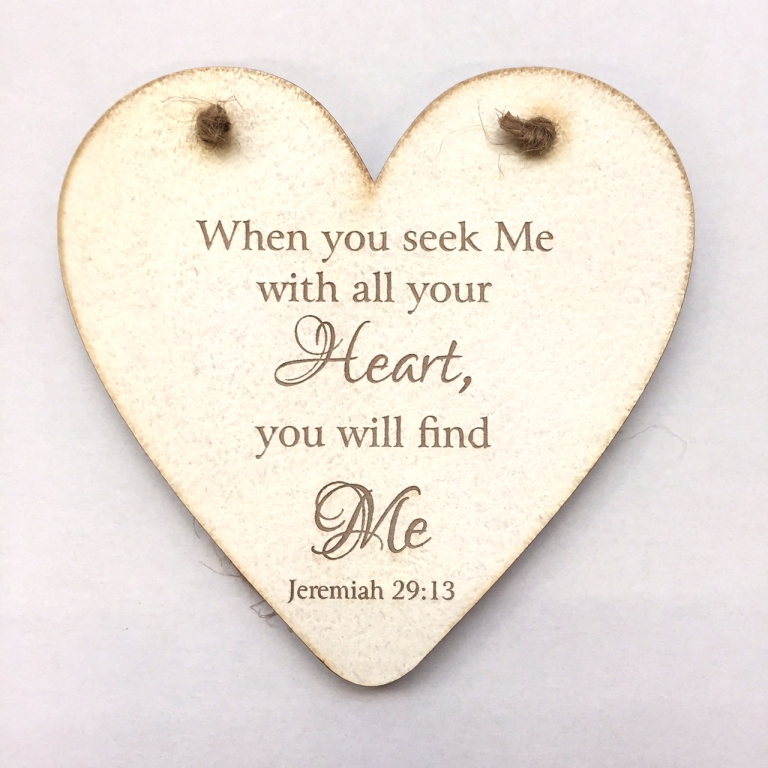 When you seek Me
with all your
Heart,
you will find
Me
Jeremiah 29:13